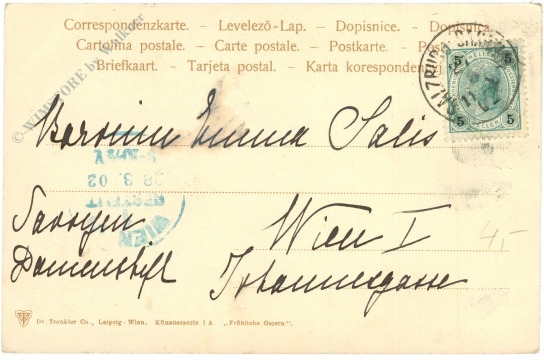 Correspondenzkarte. – Levelező-Lap. – Dopisnice. – Dopisnica.
Cartolina postale. – Carte postale. – Postkarte. – Post
Briefkaart. – Tarjeta postal. – Karta korespondenc
© WIMSTORE by Walkner
5 5
5 5
SALZBURG
02
Baronin Emma Salis
WIEN
BESTELLT
28.3.02
9-10½V
Savoyen
Damenstift
Wien I
Johannesgasse
4,-
Dr. Trenkler Co., Leipzig - Wien. Künstlerserie 1 A. „Fröhliche Ostern."